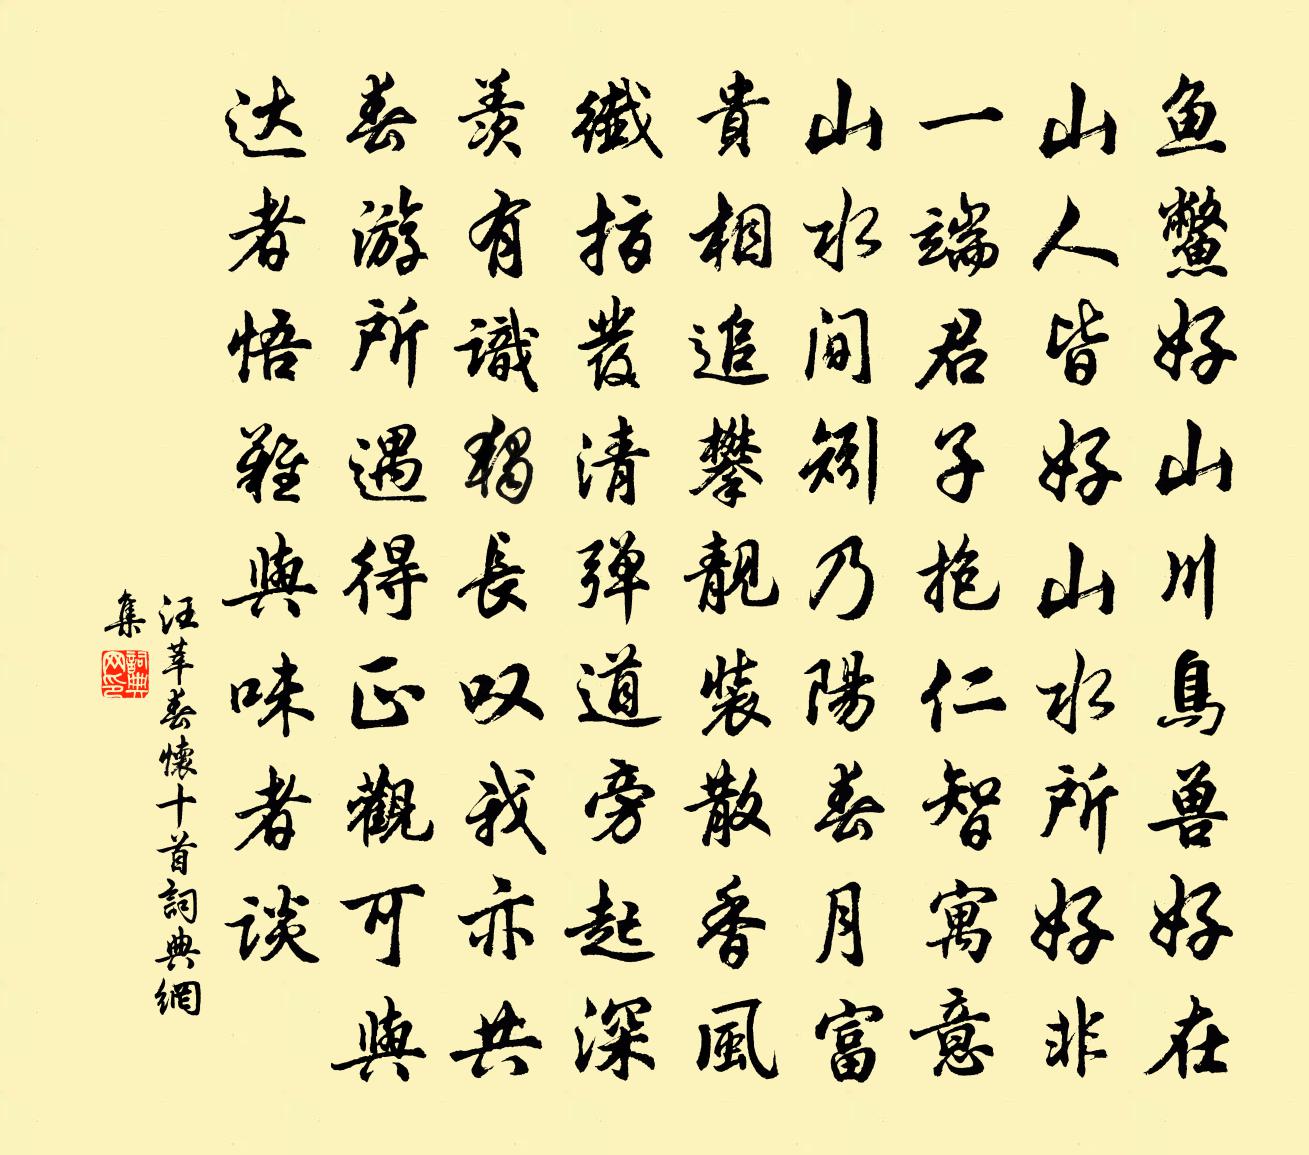 鱼鳖好山川鳥兽好在
山人皆好山水所好非
一端君子抱仁智寓意
山水間矧乃陽春月富
貴相追攀靚裝散香風
纖指發清弹道旁起深
羡有識獨長叹我亦共
春游所遇得正觀可與
达者悟難與味者谈
汪莘春懷十首詞典網
集
詞典网印